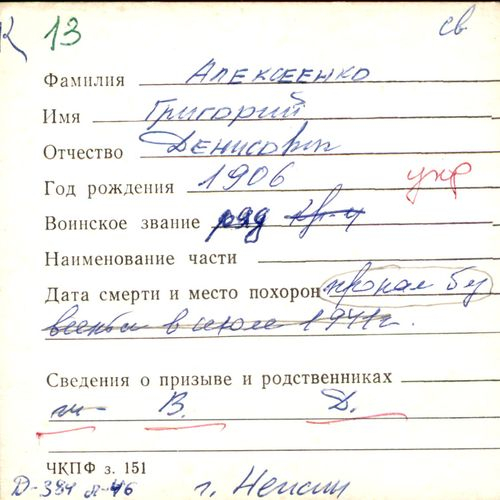 К 13 св
Фамилия Алексеенко
Имя Григорий
Отчество Денисович
Год рождения 1906
укр
Воинское звание ряд
Наименование части
Дата смерти и место похорон пропал бу
вести в июле 1941г.
Сведения о призыве и родственниках
В. Д.
ЧКПФ з. 151
Д-384 л-46 г. Нежин